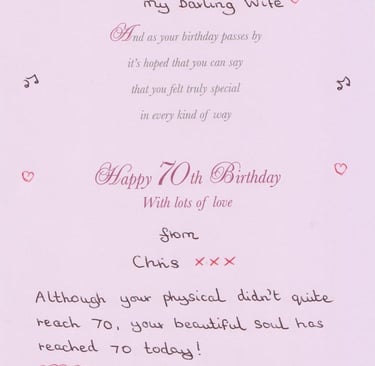 My Darling Wife
And as your birthday passes by
it's hoped that you can say
that you felt truly special
in every kind of way
Happy 70th Birthday
With lots of love
from
Chris xxx
Although your physical didn't quite
reach 70, your beautiful soul has
reached 70 today!